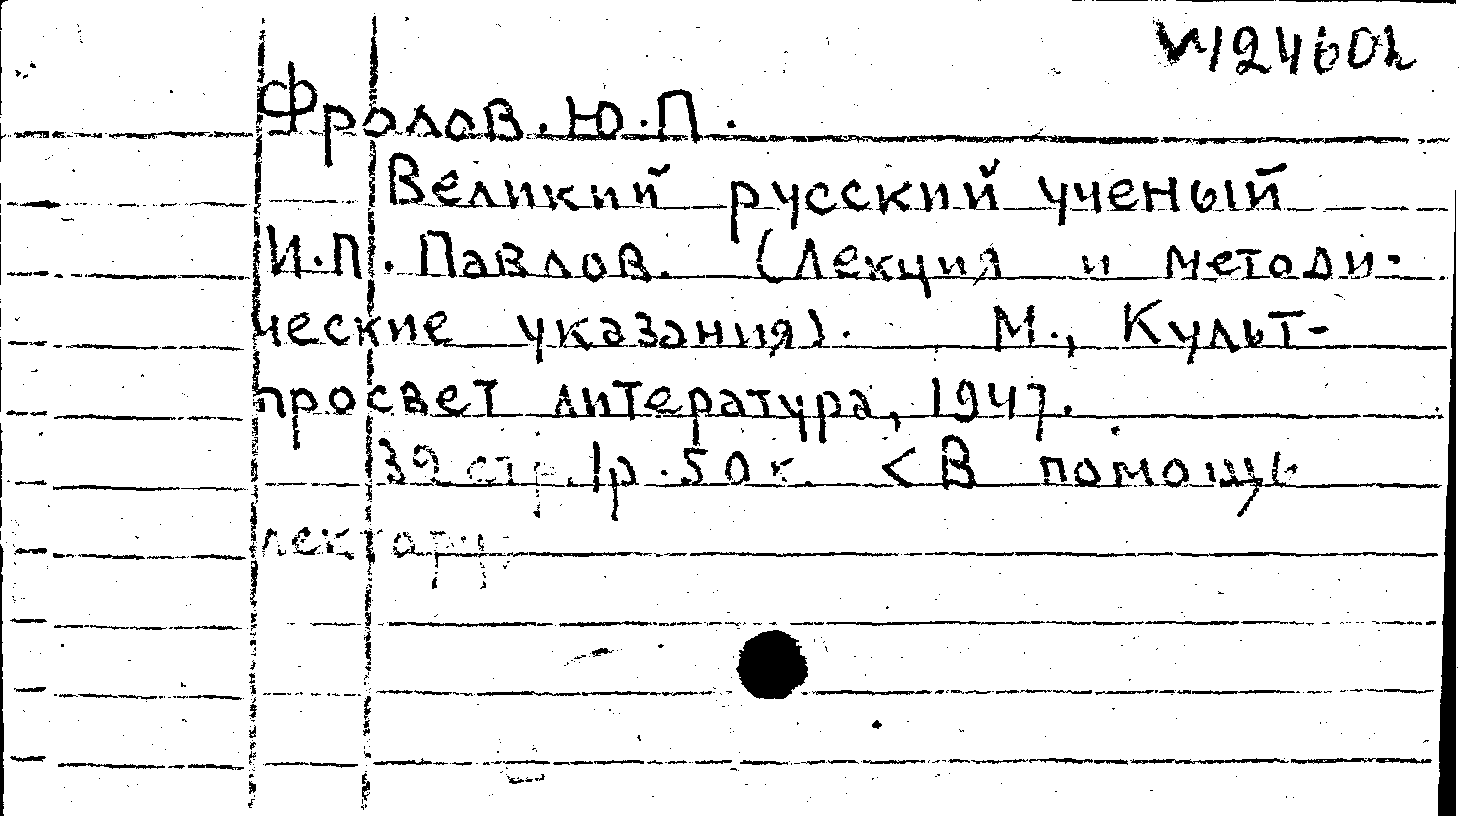 N12460h
Фролов.Ю.П.
Великий русский ученый
И.П. Павлов. (Лекция и методи-
ческие указания). М., Культ-
просвет литература, 1947.
32 стр. 1р.50к. <В помощь
лектору.